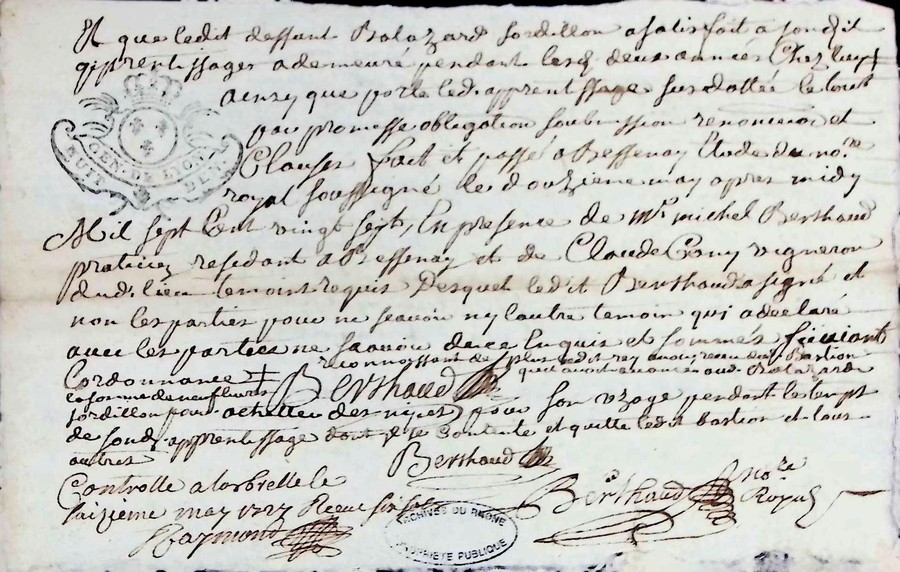 Et que ledit deffunt Balazard Sordillon a satisfait a sondit
apprentissages a demeuré pendant lesd deux années Chez luy
ainsy que porte led apprentissage susdatté le tout
par promesse obligation soubmission renonciaon et
Clauses fait et passé a Bessenay Etude du no.re
royal soussigné le douzieme may apres midy
Mil sept Cent vingt sept, En presence de m.r michel Berthaud
praticien residant a Bessenay et de Claude Cony vigneron
dud. lieu temoins requis Desquel ledit Berthaud a signé et
non les parties pour ne scavoir ny lautre temoin qui a declaré
avec les parties ne scavoir de ce Enquis et sommés suivant
Lordonnance + reconnoissant de plus ledit avoir receu dud. Bastion
la somme de neuf livres Berthaud
Sordillon pour achetter des pour son uzage pendant le tempt
de sond. apprentissage dont il se Contente et quitte ledit Bastion et tous
autres
Berthaud
Controlle a larbrelle le
saizieme may 1727 Receu six sols
Berthaud no.re Royal
Raymond
GEN. DE LYON
HUIT DEN.
ARCHIVES DU RHONE
PROPRIETE PUBLIQUE